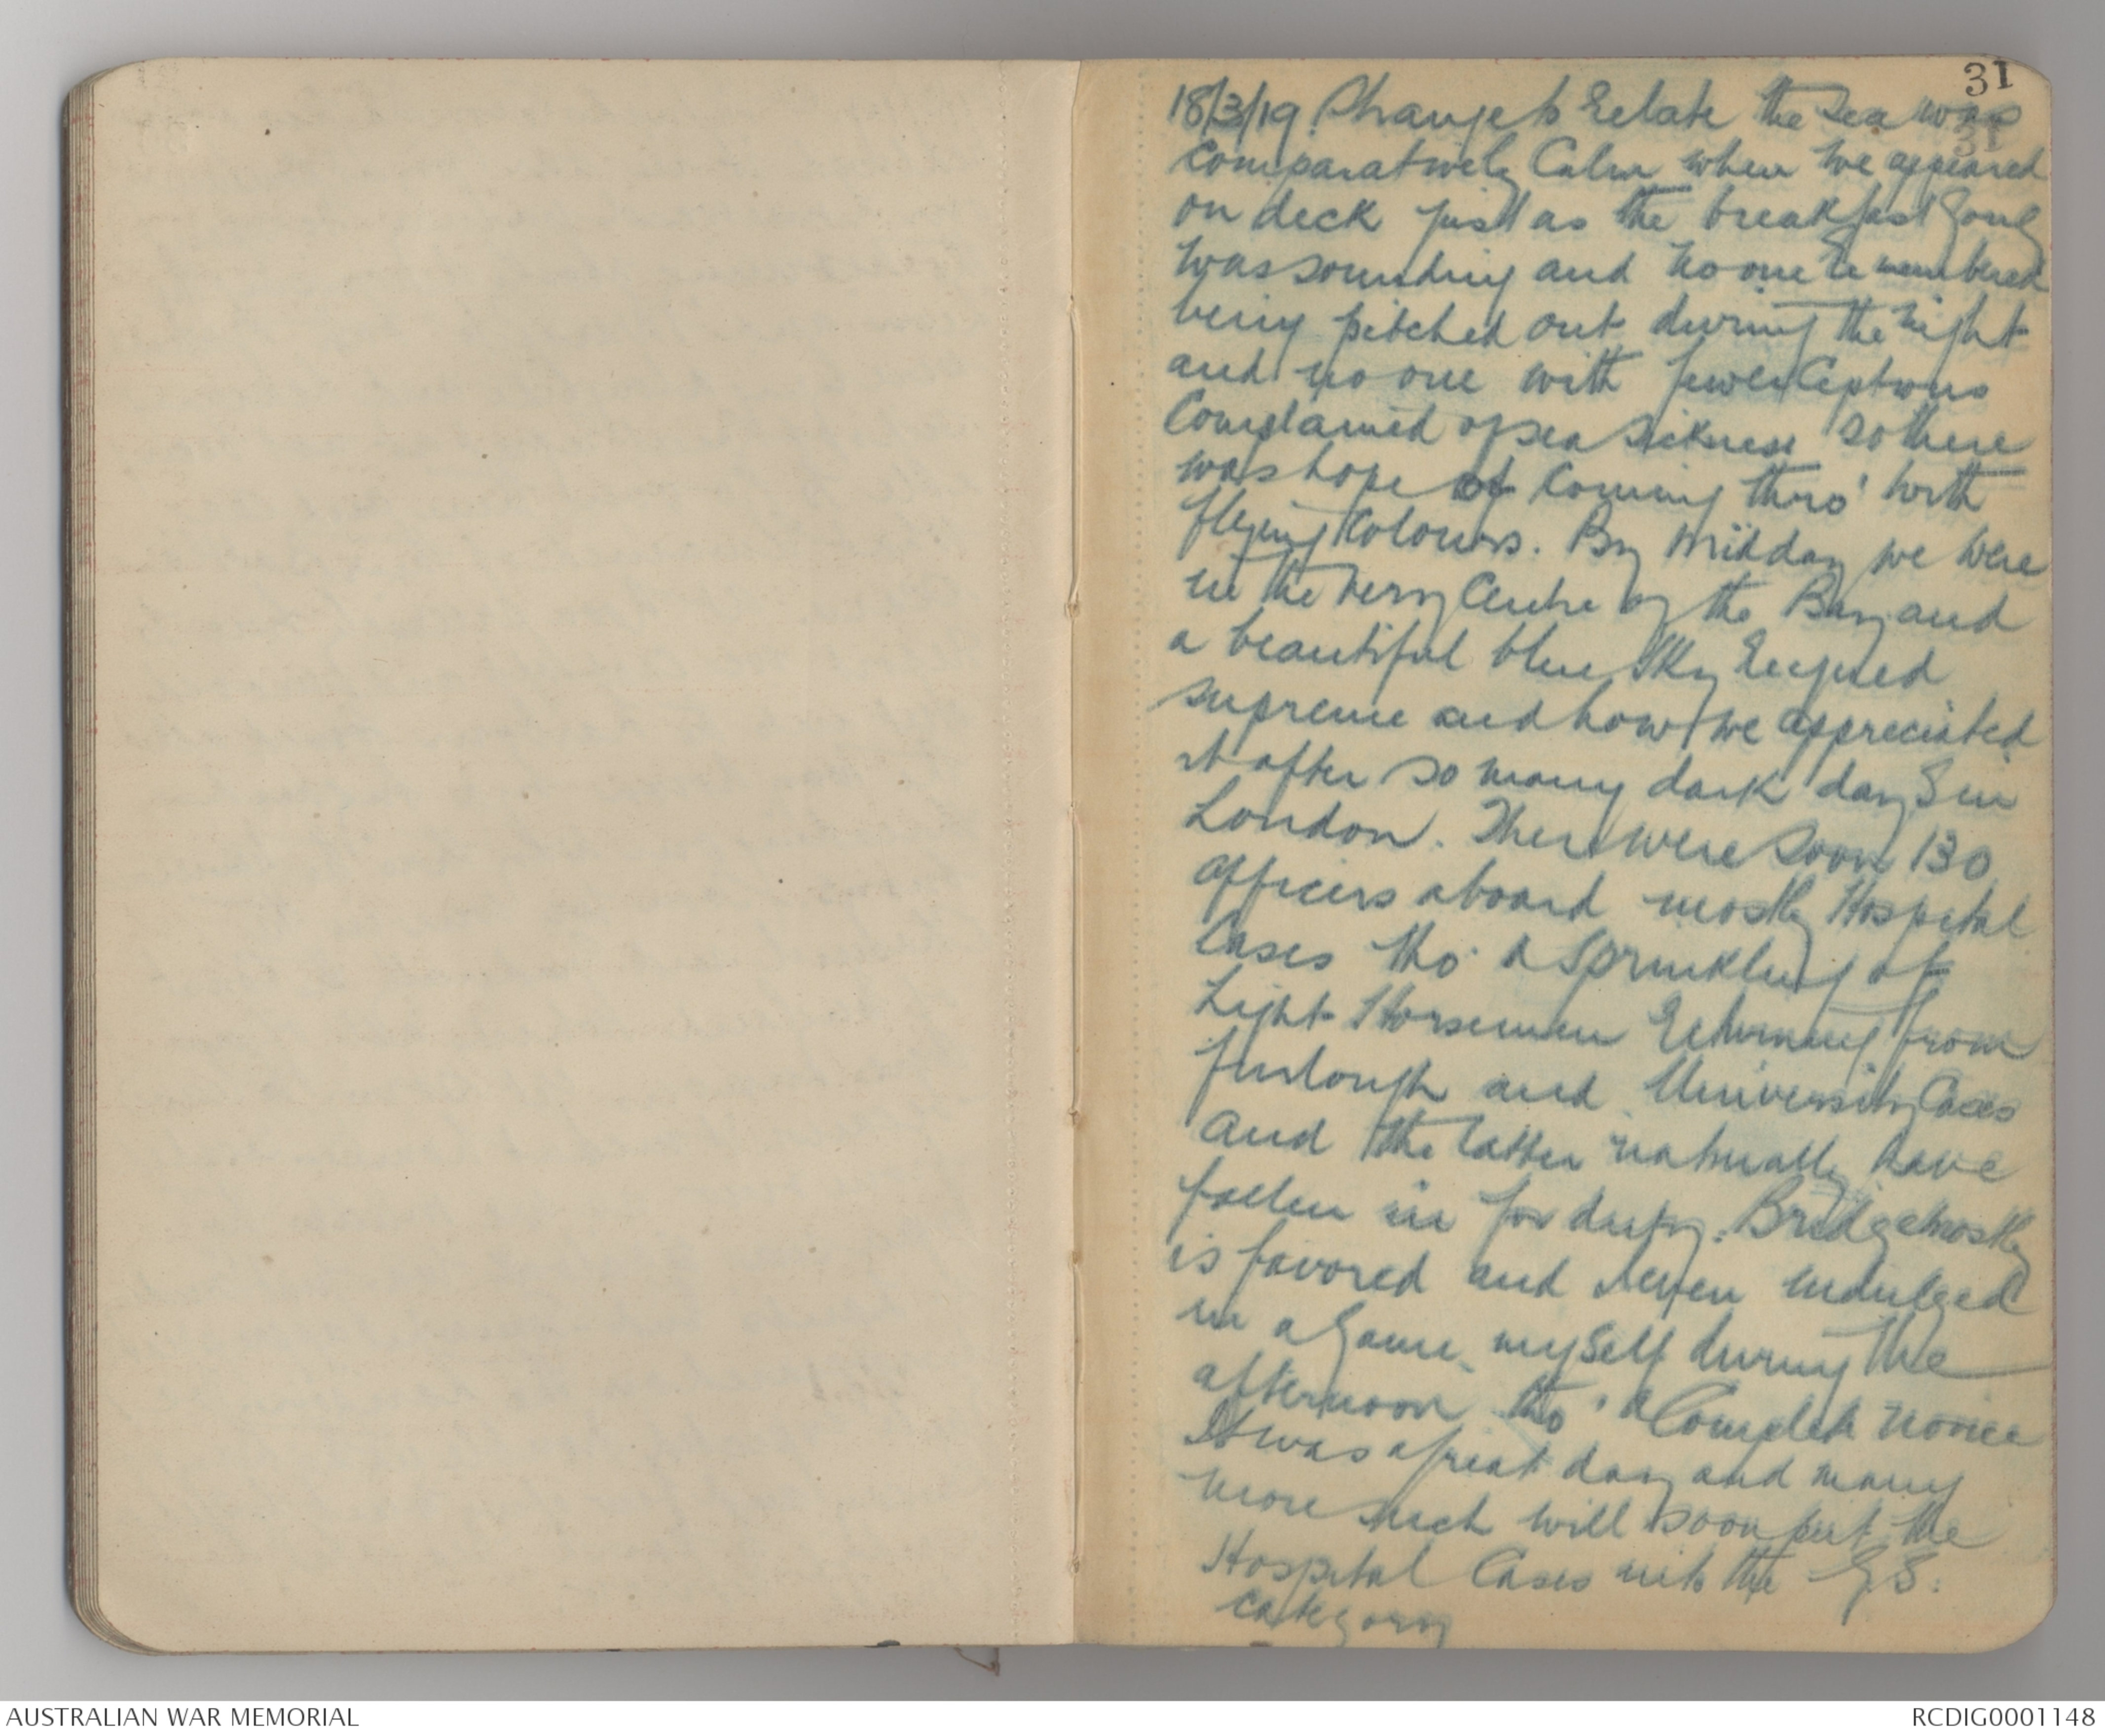 31
18/3/19. Strange to relate the sea was
comparatively calm when we appeared
on deck just as the breakfast gong
was sounding and no one remembered
being pitched out during the night
and no one with few exceptions
complained of sea sickness so there
was hope of coming thro' with
flying colours. By midday we were
in the very centre of the Bay and
a beautiful blue sky reigned
supreme and how we appreciated
it after so many dark days in
London. There were soon 130
officers aboard mostly Hospital
cases tho' a sprinkling of
Light Horsemen returning from
furlough and University Cases
and the latter naturally have
fallen in for duty. Bridge mostly
is favored and I even indulged
in a game myself during the
afternoon tho' a complete novice
It was a great day and many
more such will soon put the
Hospital Cases into the G.S.
category
AUSTRALIAN WAR MEMORIAL
RCDIG0001148